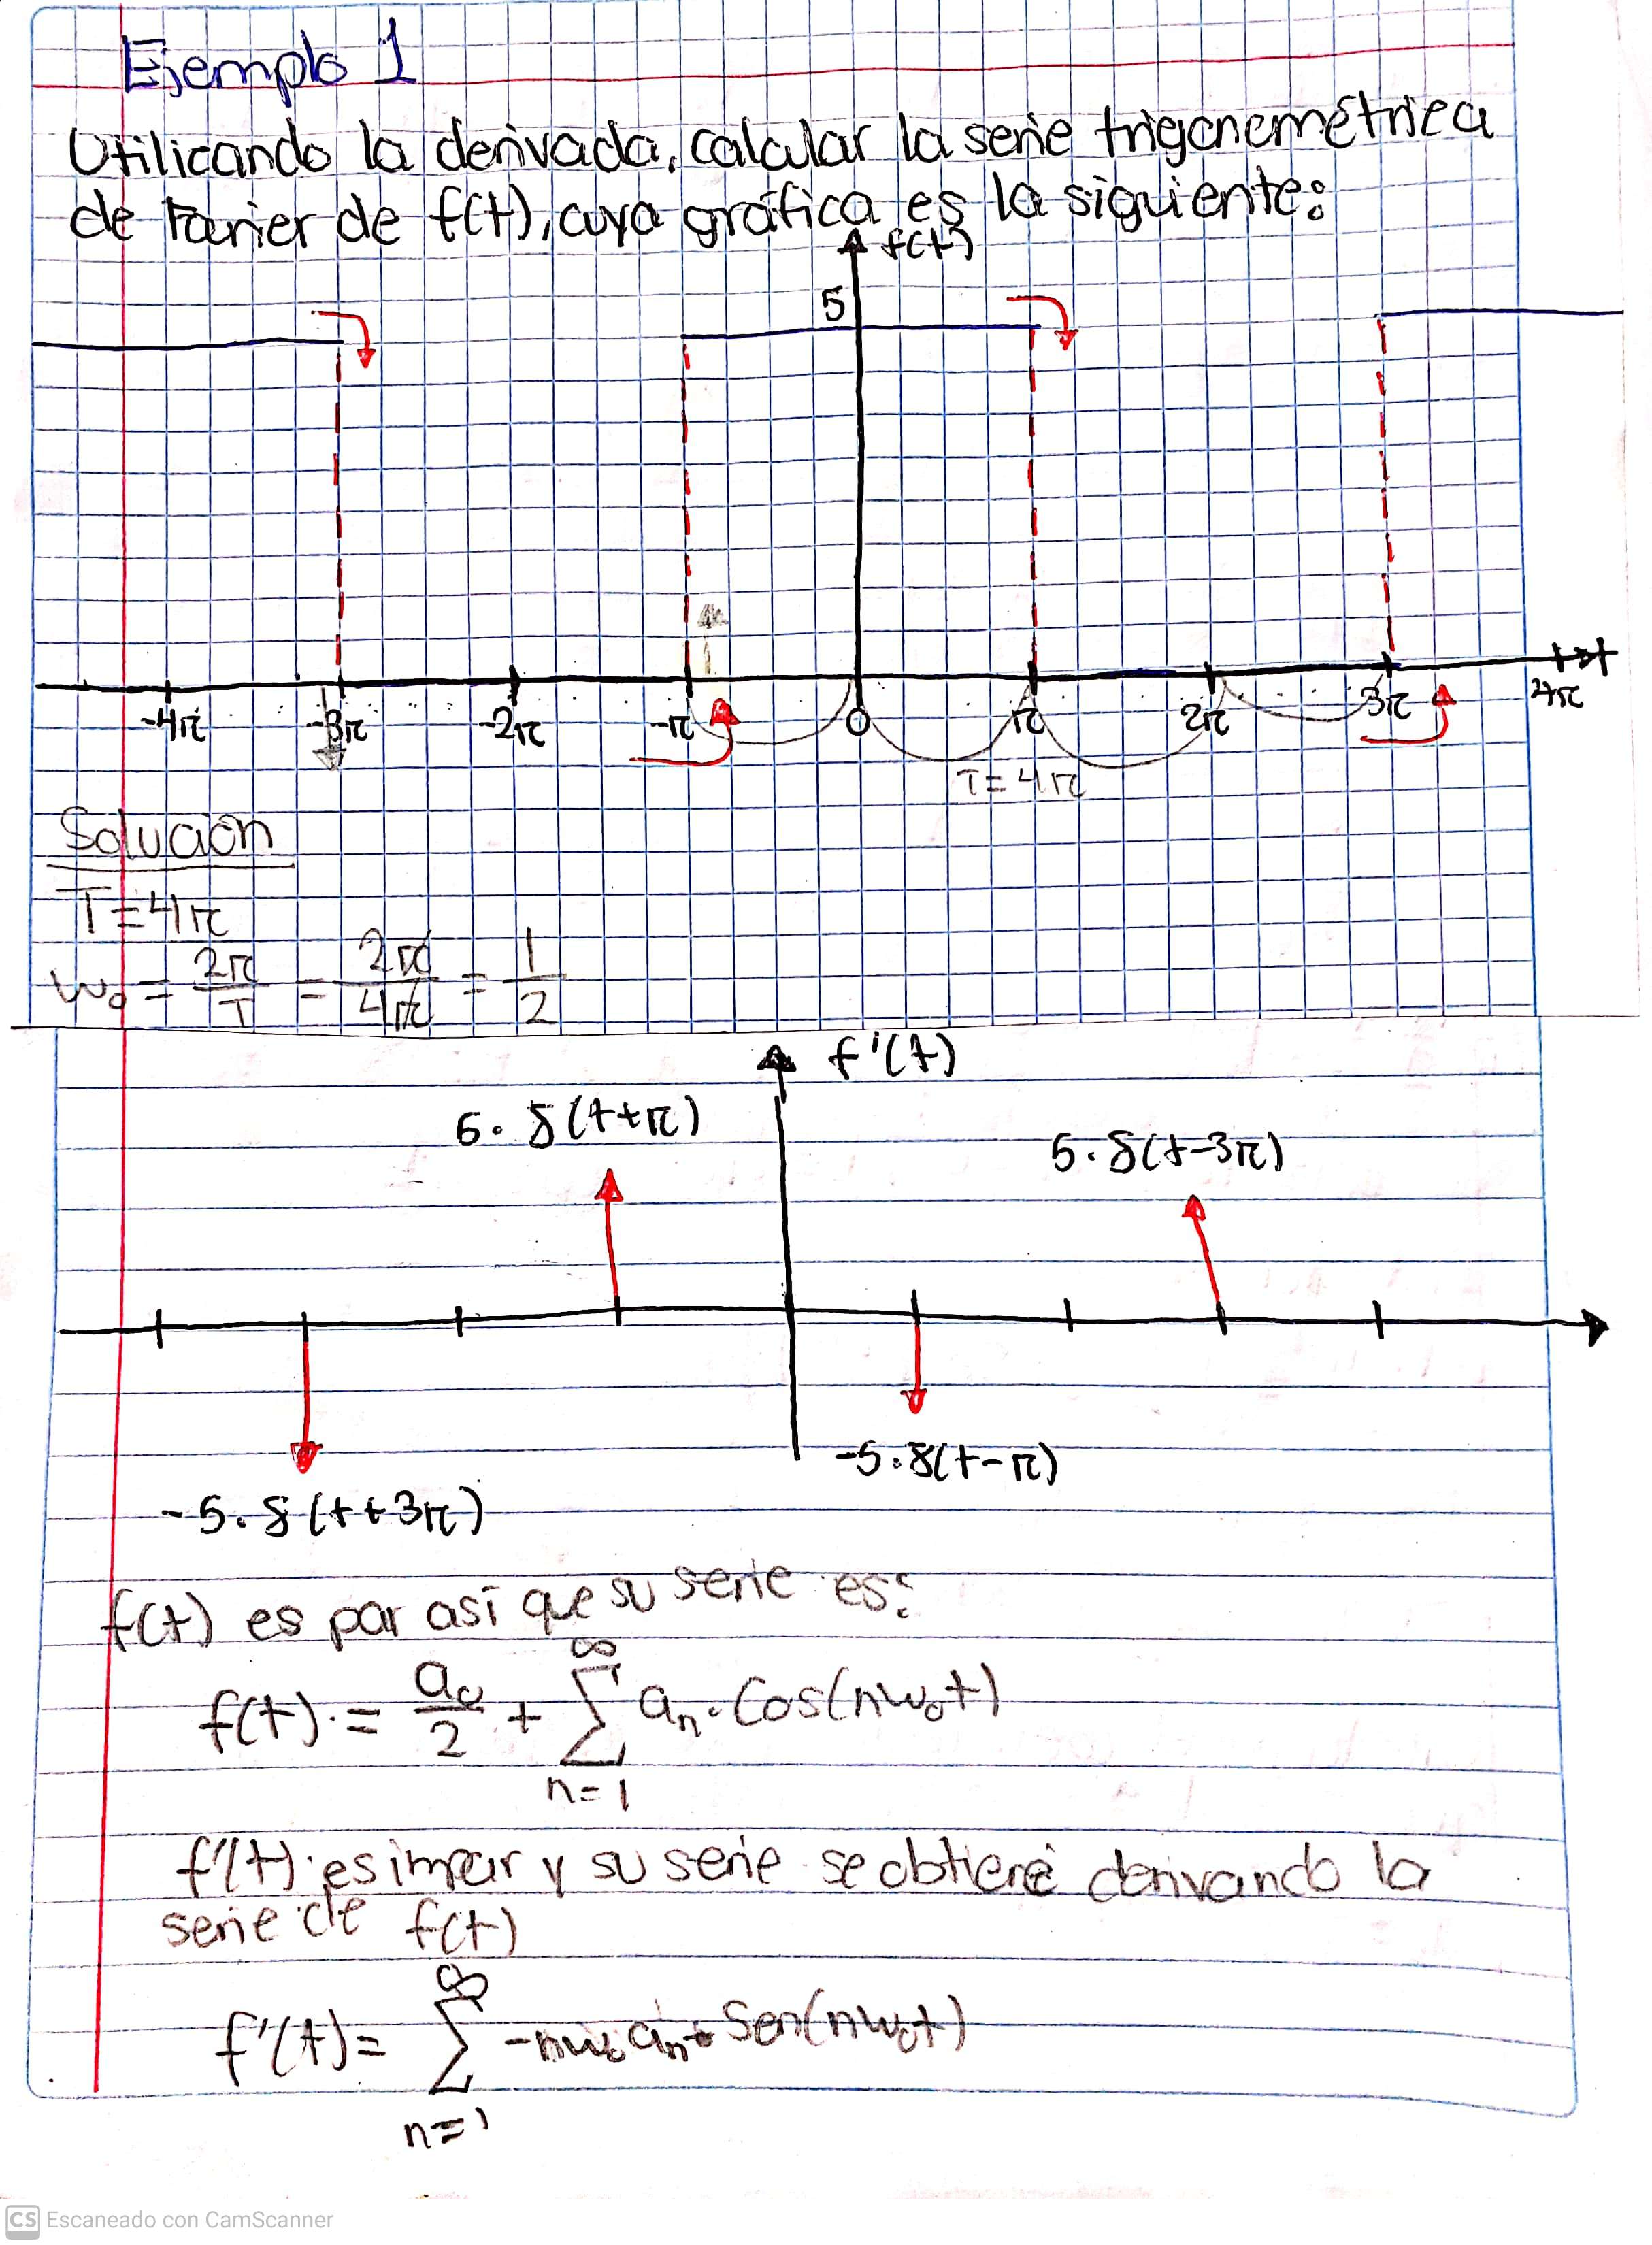 Ejemplo 1
Utilizando la derivada, calcular la serie trigonométrica
de Fourier de f(t), cuya gráfica es la siguiente:
f(t)
5
-4π -3π -2π -π 0 π 2π 3π 4π
t
T=4π
Solución
T=4π
w₀ = 2π/T = 2π/4π = 1/2
f'(t)
5·δ(t+π)
5·δ(t-3π)
-5·δ(t-π)
-5·δ(t+3π)
f(t) es par así que su serie es:
f(t) = a₀/2 + ∑ₙ₌₁^∞ aₙ·Cos(nw₀t)
f'(t) es impar y su serie se obtiene derivando la
serie de f(t)
f'(t) = ∑ₙ₌₁^∞ -nw₀aₙ·Sen(nw₀t)
CS Escaneado con CamScanner